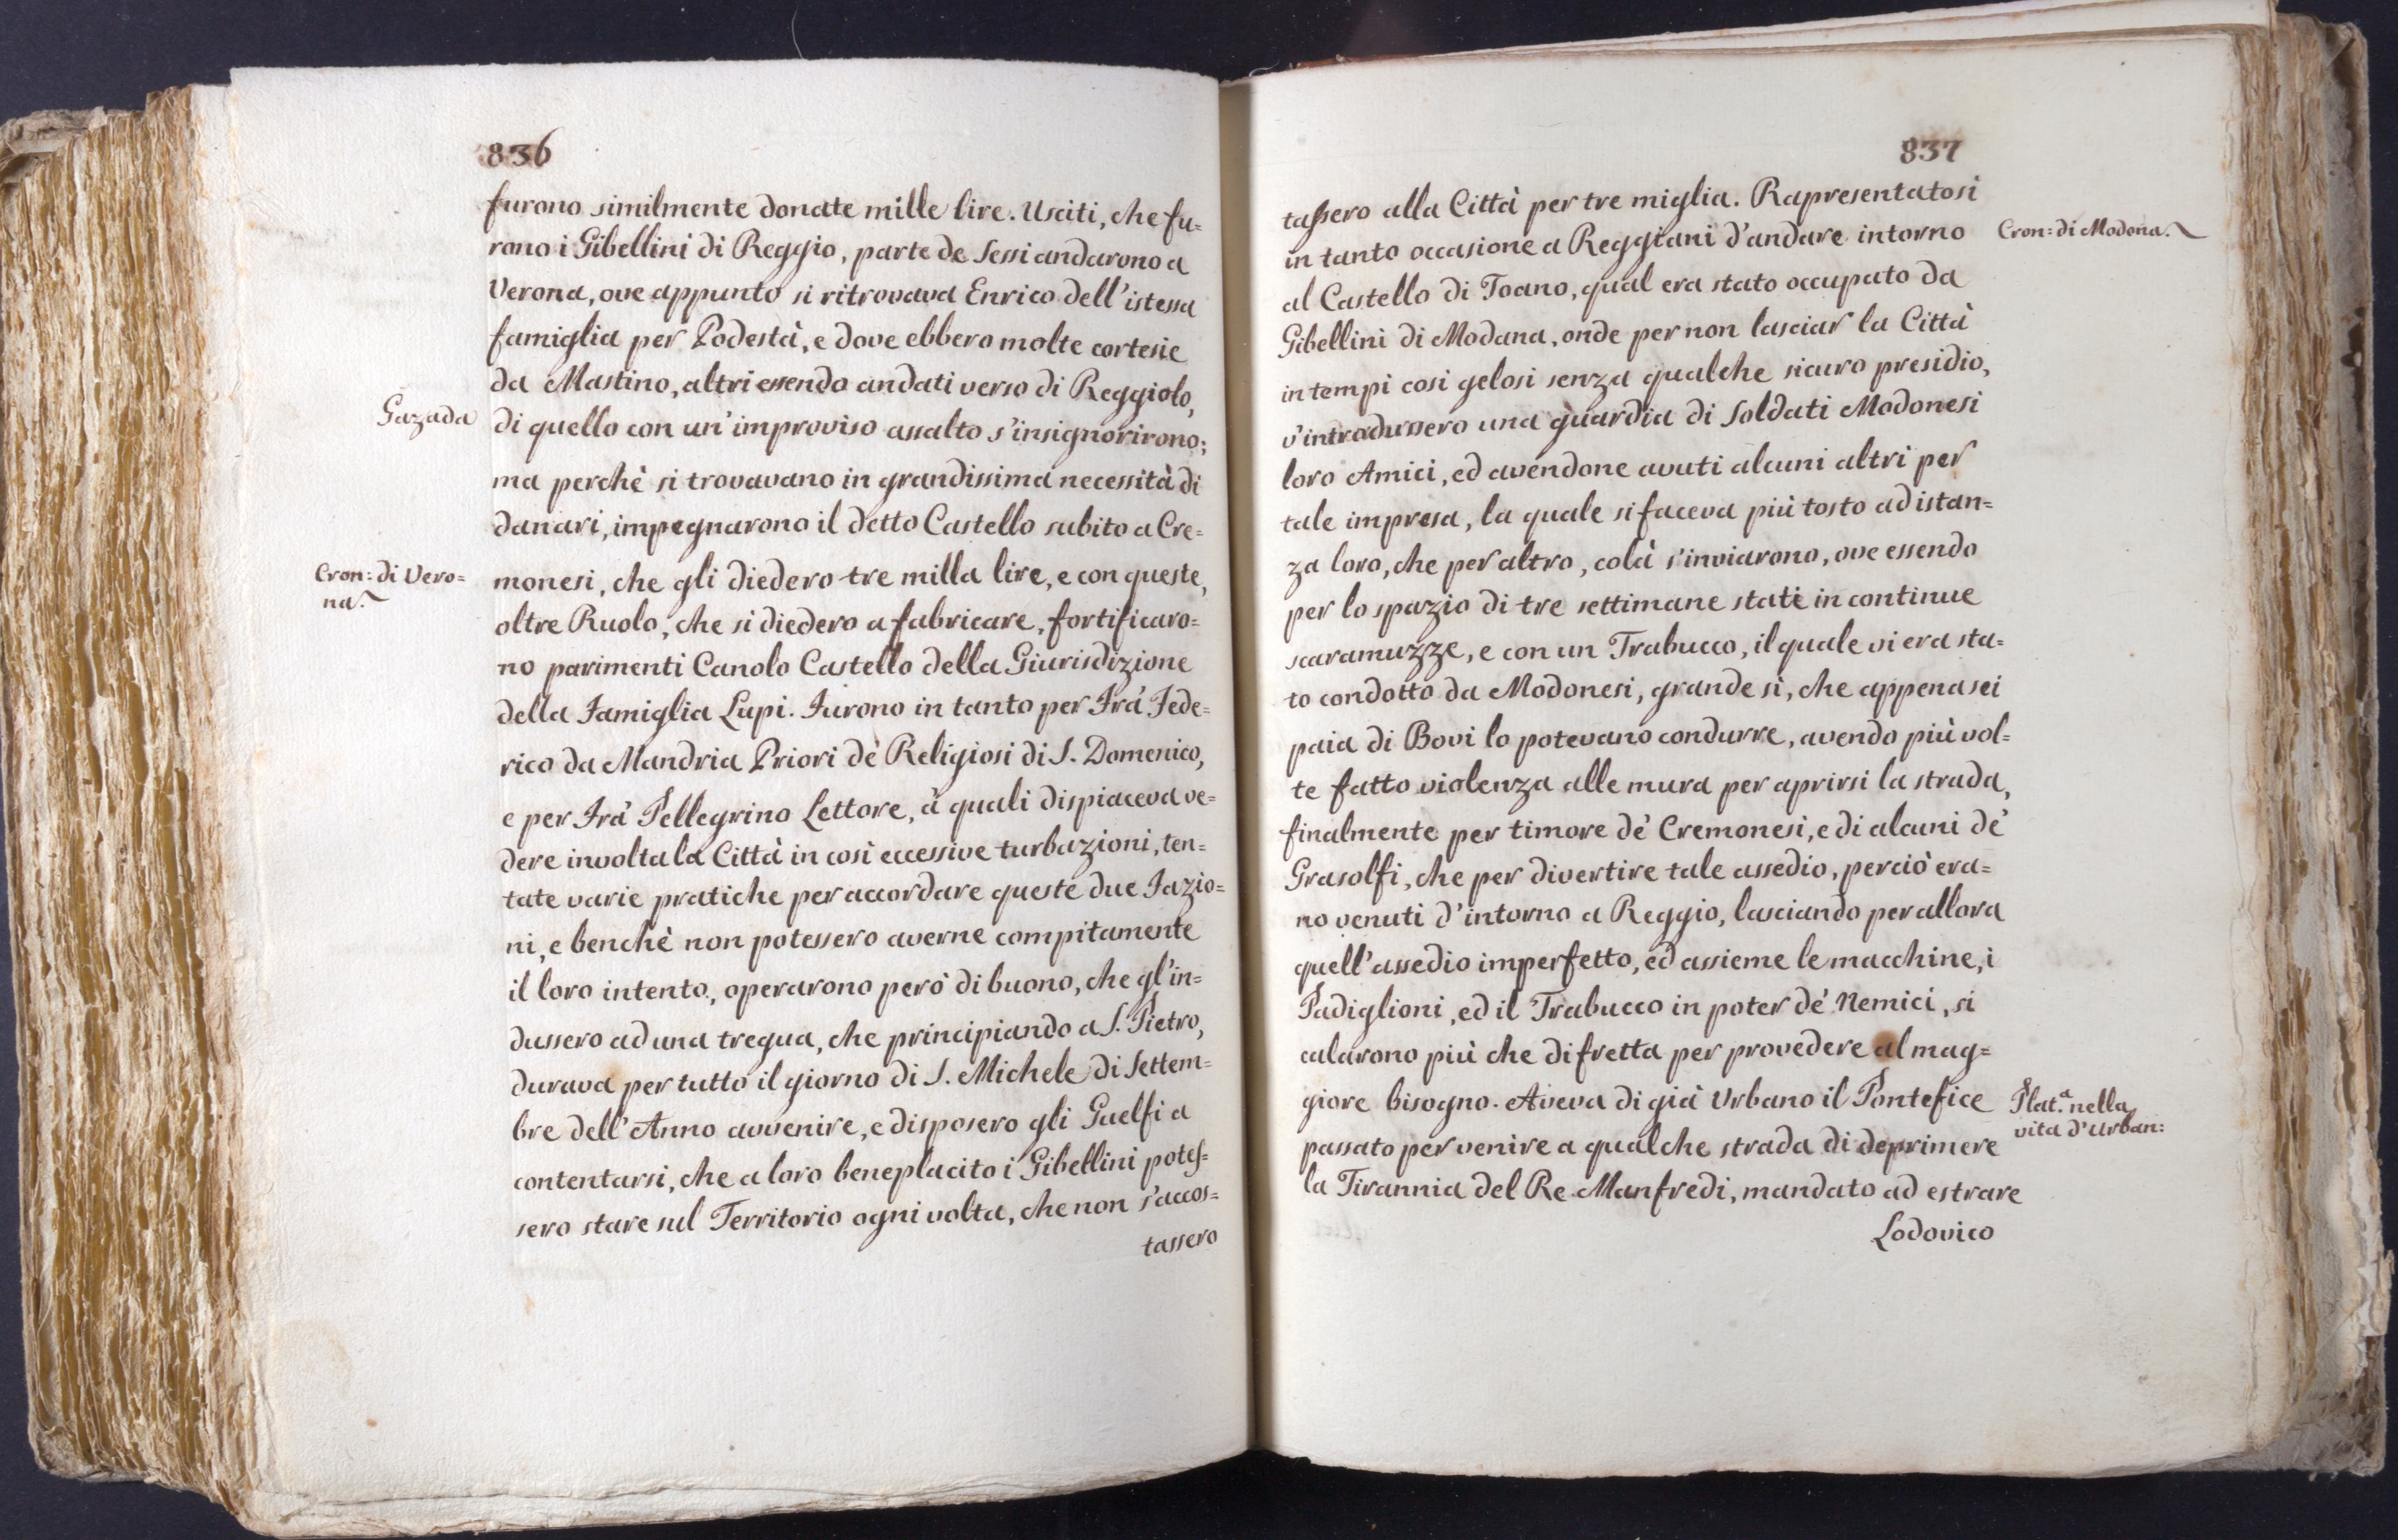 836
furono similmente donate mille lire. Usciti, che fu=
rono i Gibellini di Reggio, parte de Sessi andarono a
Verona, ove appunto si ritrovava Enrico dell'istessa
famiglia per Podestà, e dove ebbero molte cortesie
da Mastino, altri essendo andati verso di Reggiolo,
Gazada
di quello con un'improviso assalto s'insignorirono;
ma perchè si trovavano in grandissima necessità di
danari, impegnarono il detto Castello subito a Cre=
Cron: di Vero=
na.
monesi, che gli diedero tre milla lire, e con queste,
oltre Ruolo, che si diedero a fabricare, fortificaro=
no parimenti Canolo Castello della Giurisdizione
della Famiglia Lupi. Furono in tanto per Frà Fede=
rico da Mandria Priori de' Religiosi di S. Domenico,
e per Frà Pellegrino Lettore, à quali dispiaceva ve=
dere involta la Città in così eccessive turbazioni, ten=
tate varie pratiche per accordare queste due Fazio=
ni, e benchè non potessero averne compitamente
il loro intento, operarono però di buono, che gl'in=
dussero ad una tregua, che principiando a S. Pietro,
durava per tutto il giorno di S. Michele di Settem=
bre dell'Anno avvenire, e disposero gli Guelfi a
contentarsi, che a loro beneplacito i Gibellini potes=
sero stare sul Territorio ogni volta, che non s'accos=
tassero
837
tassero alla Città per tre miglia. Rapresentatosi
in tanto occasione a Reggiani d'andare intorno
Cron: di Modona.
al Castello di Toano, qual era stato occupato da
Gibellini di Modana, onde per non lasciar la Città
in tempi cosi gelosi senza qualche sicuro presidio,
v'introdussero una guardia di Soldati Modonesi
loro Amici, ed avendone avuti alcuni altri per
tale impresa, la quale si faceva più tosto ad istan=
za loro, che per altro, colà s'inviarono, ove essendo
per lo spazio di tre settimane stati in continue
scaramuzze, e con un Trabucco, il quale vi era sta=
to condotto da Modonesi, grande sì, che appena sei
paia di Bovi lo potevano condurre, avendo più vol=
te fatto violenza alle mura per aprirsi la strada,
finalmente per timore de' Cremonesi, e di alcuni de'
Grasolfi, che per divertire tale assedio, perciò era=
no venuti d'intorno a Reggio, lasciando per allora
quell'assedio imperfetto, ed assieme le macchine, i
Padiglioni, ed il Trabucco in poter de' Nemici, si
calarono più che di fretta per provedere al mag=
giore bisogno. Aveva di già Urbano il Pontefice
Plat.ª nella
vita d'Urban:
passato per venire a qualche strada di deprimere
la Tirannia del Re Manfredi, mandato ad estrare
Lodovico